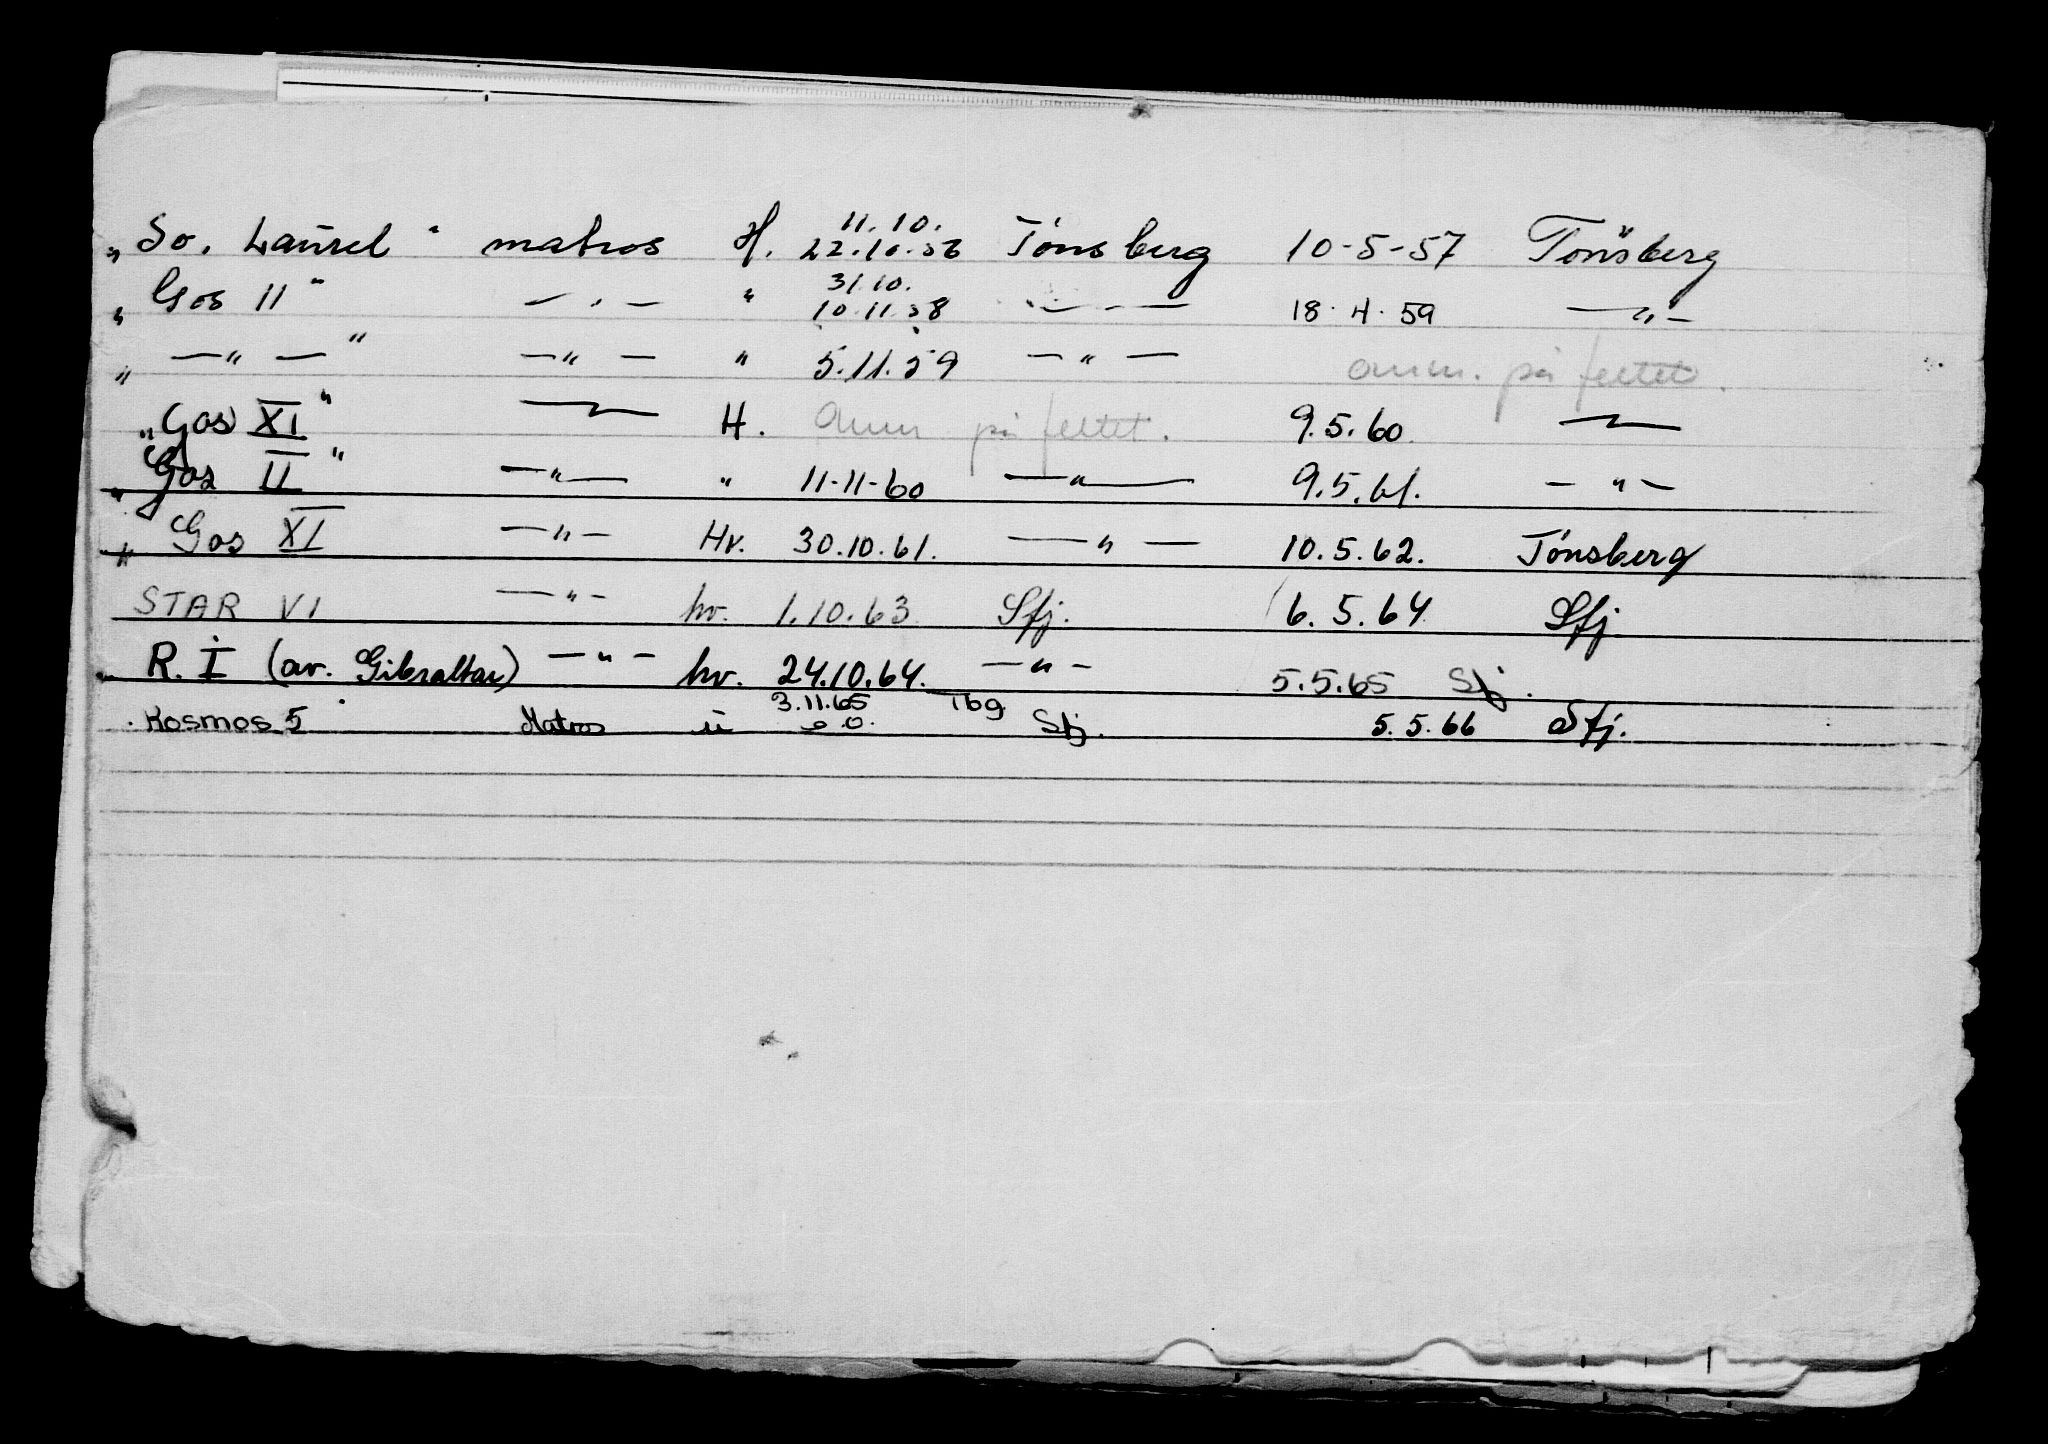 11.10.
„ So. Laurel " matros H. 22.10.56 Tönsberg 10-5-57 Tönsberg
31.10.
„ Gos 11 " — " — " 10.11.58 — " — 18.4.59 — " —
„ — " — " — " — " 5.11.59 — " — avm. på feltet.
„ Gos XI " — " — H. avm på feltet. 9.5.60. — " —
„ Gos II " — " — " 11-11-60 — " — 9.5.61. — " —
„ Gos XI — " — Hv. 30.10.61. — " — 10.5.62. Tönsberg
STAR VI — " — hv. 1.10.63 Sfj. 6.5.64 Sfj
R. I (av. Gibraltar) — " — hv. 24.10.64. — " — 5.5.65 Sfj.
3.11.65 Tbg
Kosmos 5 Matros " Sfj. 5.5.66 Sfj.